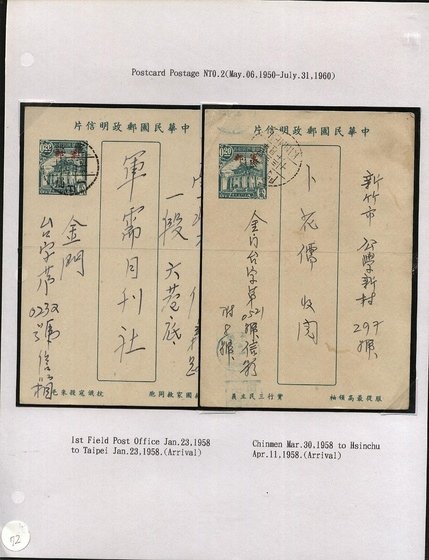 Postcard Postage NT0.2(May.06.1950-July.31.1960)
中華民國郵政明信片
0.20
一段六巷底
軍需月刊社
金門
台字第
0232
號信箱
中華民國郵政明信片
0.20
新竹市
公學新村
297
號
卜花儒收閱
金門台字第0521
號信箱
附8號
服從最高領袖
實行三民主義
1st Field Post Office Jan.23,1958
to Taipei Jan.23,1958.(Arrival)
Chinmen Mar.30.1958 to Hsinchu
Apr.11,1958.(Arrival)
72